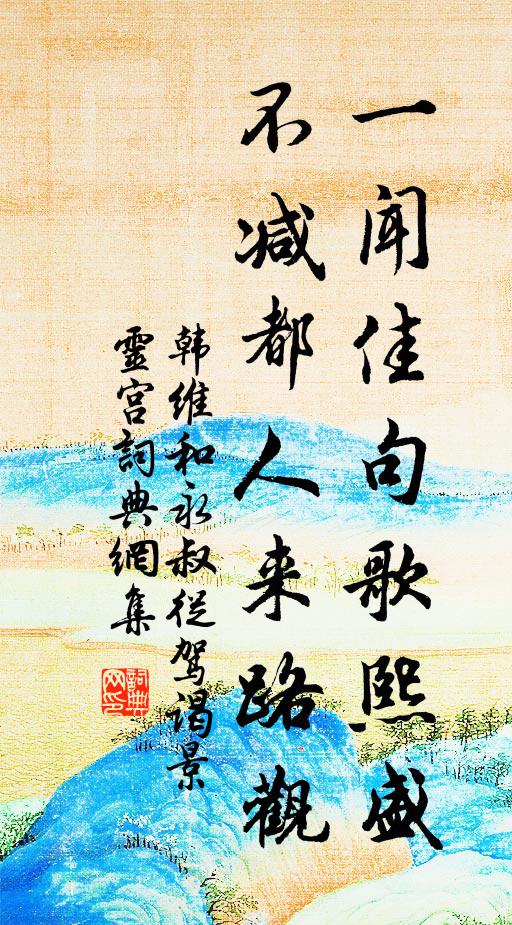 一闻佳句歌熙盛
不减都人来路觀
韩维和永叔従驾谒景
靈宫詞典網集
詞典網印